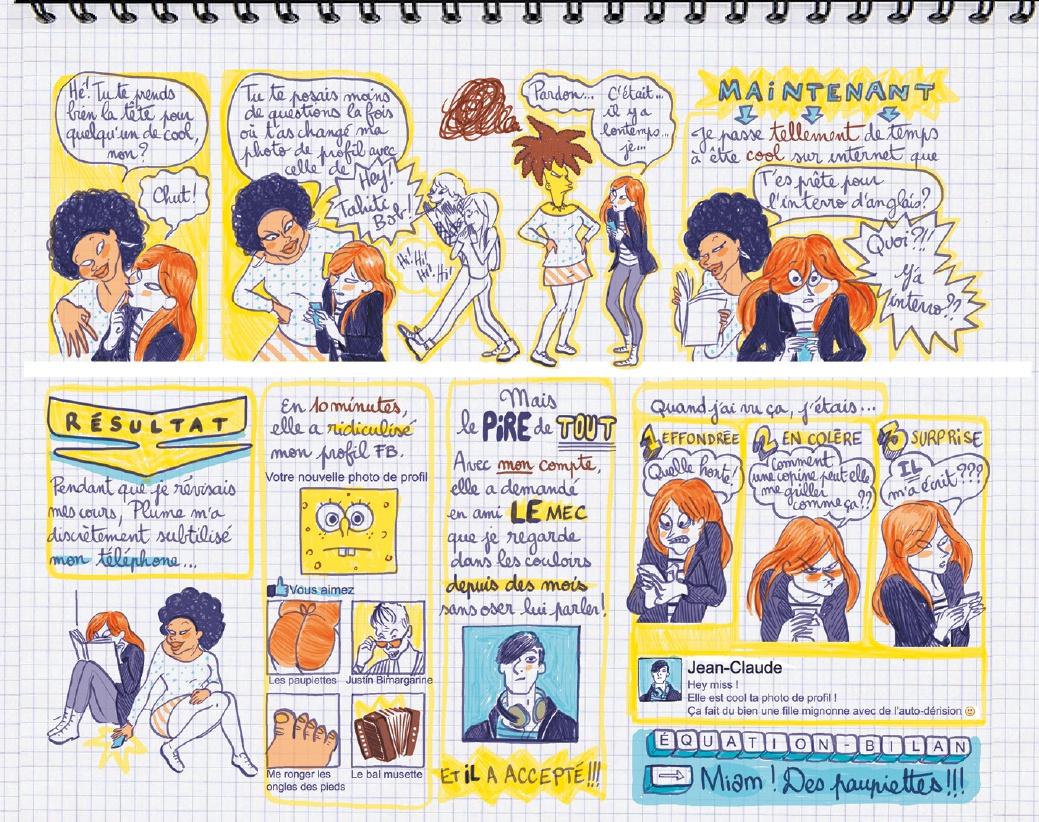 Hé! Tu te prends
bien la tête pour
quelqu'un de cool,
non?
Chut!
Tu te posais moins
de questions la fois
où t'as changé ma
photo de profil avec
celle de
Hey!
Tahiti
Bob!
Hi! Hi!
Hi! Hi!
Pardon...
C'était...
il y a
longtemps...
je...
MAINTENANT
Je passe tellement de temps
à être cool sur internet que
T'es prête pour
l'interro d'anglais?
Quoi?!!
Y'a
interro??
RÉSULTAT
Pendant que je révisais
mes cours, Plume m'a
discrètement subtilisé
mon téléphone...
En 10 minutes,
elle a ridiculisé
mon profil FB.
Votre nouvelle photo de profil
Vous aimez
Les paupiettes
Justin Bimargarine
Me ronger les
ongles des pieds
Le bal musette
Mais
le PIRE de TOUT
Avec mon compte,
elle a demandé
en ami LE MEC
que je regarde
dans les couloirs
depuis des mois
sans oser lui parler!
ET IL A ACCEPTÉ!!!
Quand j'ai vu ça, j'étais...
1 EFFONDRÉE
Quelle honte!
2 EN COLÈRE
Comment
une copine peut-elle
me griller
comme ça??
3 SURPRISE
IL
m'a écrit???
Jean-Claude
Hey miss !
Elle est cool ta photo de profil !
Ça fait du bien une fille mignonne avec de l'auto-dérision
ÉQUATION-BILAN
Miam! Des paupiettes!!!